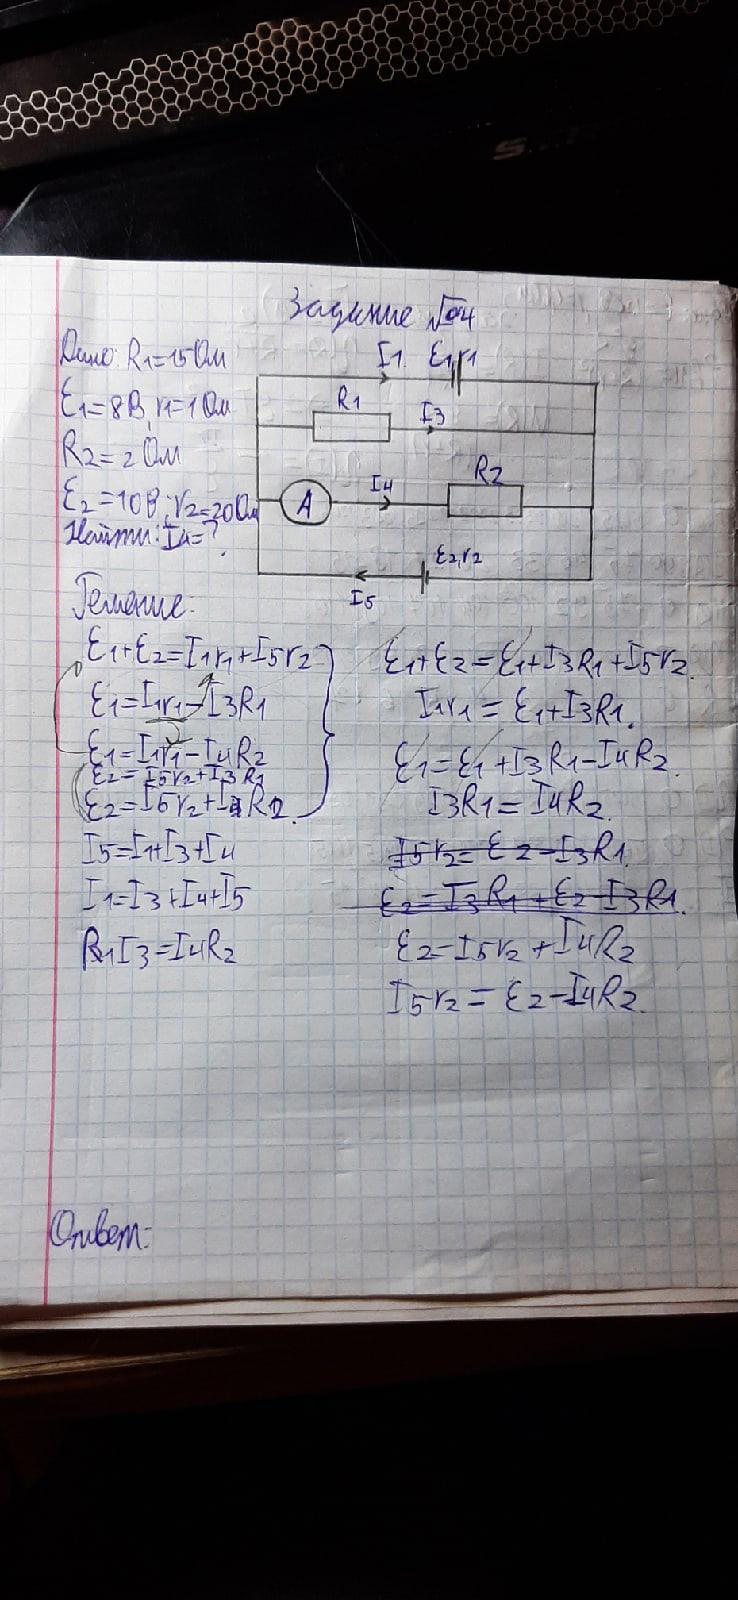 Задание №4
Дано: R1=15 Ом
ε1=8В, r1=1 Ом
R2=2 Ом
ε2=10В; r2=20м
Найти: I4=?
I1 ε1,r1
R1 I3
A I4 R2
ε2,r2
I5
Решение:
ε1+ε2=I1r1+I5r2
ε1=I1r1-I3R1
ε1=I1r1-I4R2
ε2=I5r2+I3R1
ε2=I5r2+I4R2.
I5=I1+I3+I4
I1=I3+I4+I5
R1I3=I4R2
ε1+ε2=ε1+I3R1+I5r2.
I1r1=ε1+I3R1.
ε1=ε1+I3R1-I4R2.
I3R1=I4R2.
I5r2=ε2-I3R1.
ε2=I3R1+ε2-I3R1.
ε2-I5r2+I4R2
I5r2=ε2-I4R2.
Ответ: